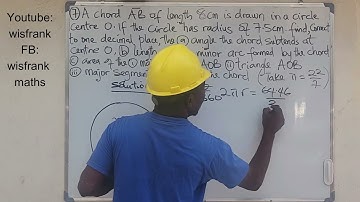 Youtube:
wisfrank
FB:
wisfrank
maths
⑦ A chord AB of length 8cm is drawn in a circle
centre O. If the circle has radius of 7.5cm find, correct
to one decimal place, the (a) angle the chord subtends at
Centre O. (b) length minor arc formed by the chord
(c) area of the (i) minor AOB (ii) triangle AOB
(iii) major Segment the chord (Take π = 22/7)
Solution 360 2πr = 64.46